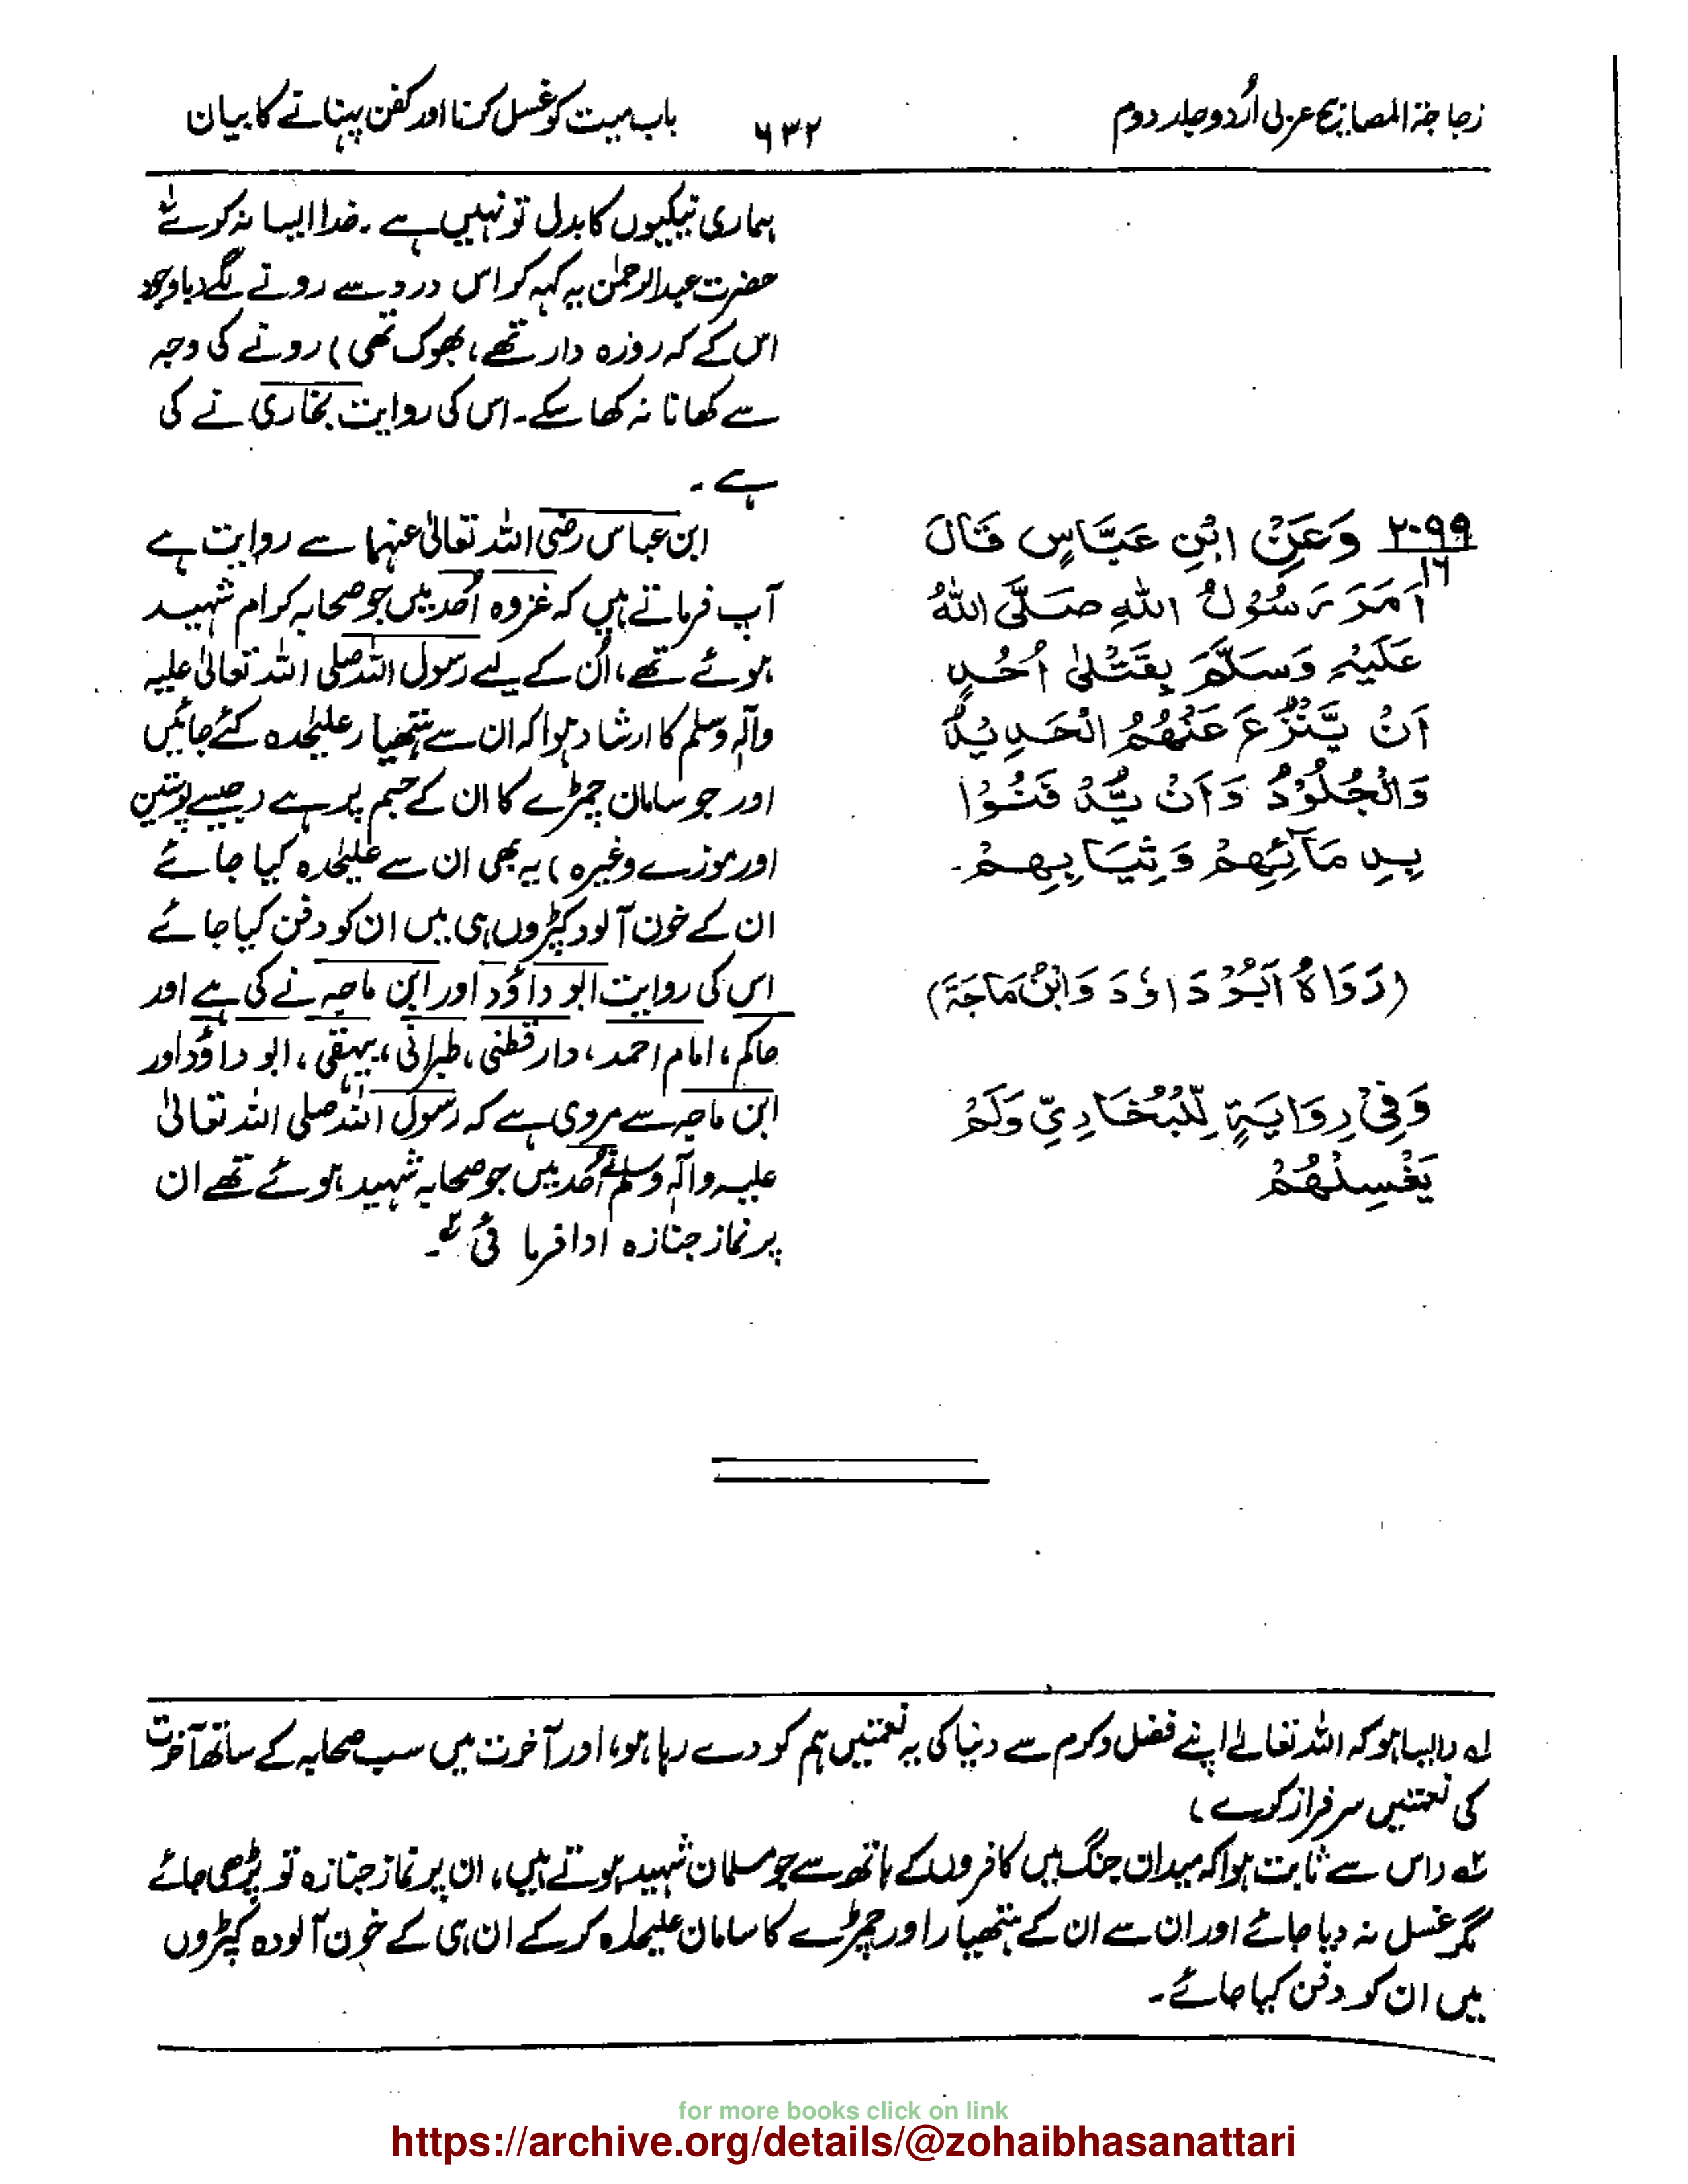 زجاجۃ المصابیح عربی اُردو جلد دوم
۶۳۲
باب میت کو غسل کرنا اور کفن پہنانے کا بیان
ہماری نیکیوں کا بدل تو نہیں ہے۔ خدا ایسا نہ کرے لہ
حضرت عبدالرحمٰن یہ کہہ کر اس درد سے رونے لگے (باوجود
اس کے کہ روزہ دار تھے، بھوک تھی) رونے کی وجہ
سے کھانا نہ کھا سکے۔ اس کی روایت بخاری نے کی
ہے۔
۲۰۹۹ وَعَنْ ابْنِ عَبَّاسٍ قَالَ
۱۶
اَمَرَ رَسُوْلُ اللهِ صَلَّى اللهُ
عَلَيْهِ وَسَلَّمَ بِقَتْلىٰ اُحُدٍ
اَنْ يَّنْزَعَ عَنْهُمُ الْحَدِيْدُ
وَالْجُلُوْدُ وَاَنْ يُّدْفَنُوْا
بِدِمَآئِهِمْ وَثِيَابِهِمْ۔
(رَوَاهُ اَبُوْ دَاوٗدَ وَابْنُ مَاجَةَ)
وَفِيْ رِوَايَةٍ لِّلْبُخَارِيِّ وَلَمْ
يَغْسِلْهُمْ
ابن عباس رضی اللہ تعالیٰ عنہما سے روایت ہے
آپ فرماتے ہیں کہ غزوہ اُحد میں جو صحابہ کرام شہید
ہوئے تھے، اُن کے لیے رسول اللہ صلی اللہ تعالیٰ علیہ
وآلہٖ وسلم کا ارشاد ہوا کہ ان سے ہتھیار علیٰحدہ کئے جائیں
اور جو سامان چمڑے کا ان کے جسم پر ہے (جیسے پوستین
اور موزے وغیرہ) یہ بھی ان سے علیٰحدہ کیا جائے
ان کے خون آلود کپڑوں ہی میں ان کو دفن کیا جائے
اس کی روایت ابو داؤد اور ابن ماجہ نے کی ہے اور
حاکم، امام احمد، دارقطنی، طبرانی، بیہقی، ابو داؤد اور
ابن ماجہ سے مروی ہے کہ رسول اللہ صلی اللہ تعالیٰ
علیہ وآلہٖ وسلم نے اُحد میں جو صحابہ شہید ہوئے تھے ان
پر نماز جنازہ ادا فرمائی ٢ہ۔
لہ (ایسا ہو کہ اللہ تعالےٰ اپنے فضل و کرم سے دنیا کی یہ نعمتیں ہم کو دے رہا ہو، اور آخرت میں سب صحابہ کے ساتھ آخرت
کی نعمتیں سرفراز کرے)
٢ہ (اس سے ثابت ہوا کہ میدان جنگ میں کافروں کے ہاتھ سے جو مسلمان شہید ہوتے ہیں، ان پر نماز جنازہ تو پڑھی جائے
مگر غسل نہ دیا جائے اور ان سے ان کے ہتھیار اور چمڑے کا سامان علیحدہ کر کے ان ہی کے خون آلودہ کپڑوں
میں ان کو دفن کیا جائے۔
for more books click on link
https://archive.org/details/@zohaibhasanattari